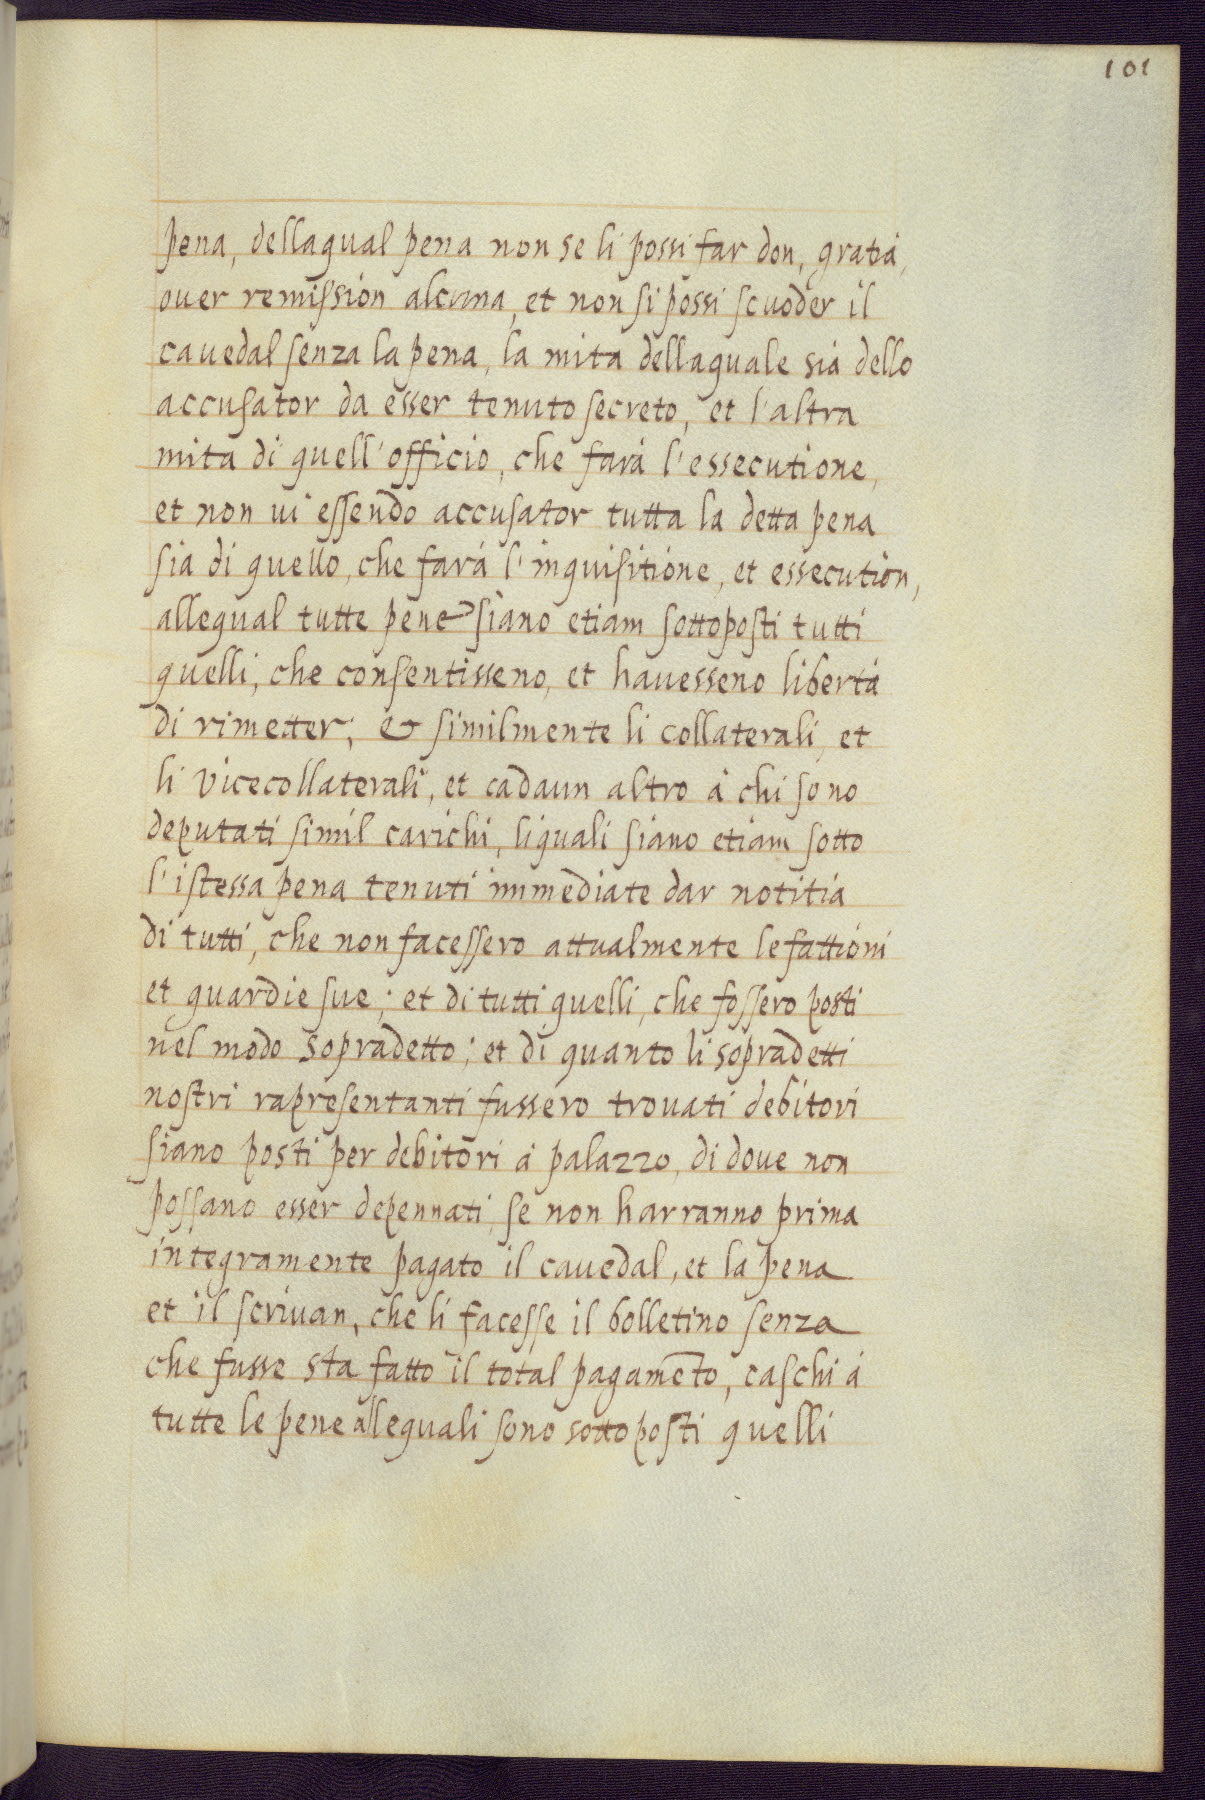 101
pena, dellaqual pena non se li possi far don, gratia,
ouer remission alcuna, et non si possi scuoder il
cauedal senza la pena, la mita dellaquale sia dello
accusator da esser tenuto secreto, et l'altra
mita di quell'officio, che farà l'essecutione,
et non ui essendo accusator tutta la detta pena
sia di quello, che farà l'inquisitione, et essecution,
allequal tutte pene siano etiam sottoposti tutti
quelli, che consentisseno, et hauesseno libertà
di rimetter; & similmente li collaterali, et
li vicecollaterali, et cadaun altro à chi sono
deputati simil carichi, liquali siano etiam sotto
l'istessa pena tenuti immediate dar notitia
di tutti, che non facessero attualmente le fattioni
et guardie sue; et di tutti quelli, che fossero posti
nel modo sopradetto; et di quanto li sopradetti
nostri rapresentanti fussero trouati debitori
siano posti per debitori à palazzo, di doue non
possano esser depennati, se non harranno prima
integramente pagato il cauedal, et la pena
et il scriuan, che li facesse il bolletino senza
che fusse sta fatto il total pagamēto, caschi à
tutte le pene allequali sono sottoposti quelli